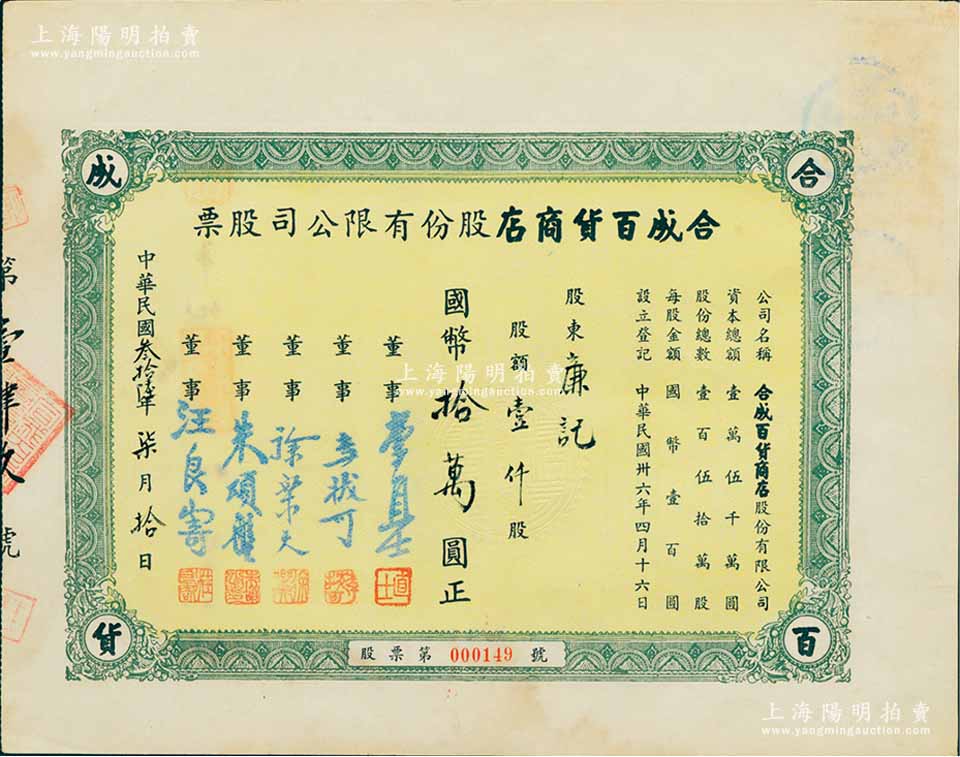 上海陽明拍賣
www.yangmingauction.com
合
成
百
貨
合成百貨商店股份有限公司股票
公司名稱 合成百貨商店股份有限公司
資本總額 壹萬伍千萬圓
股份總數 壹百伍拾萬股
每股金額 國幣壹百圓
設立登記 中華民國卅六年四月十六日
股東 廉記
股額 壹仟股
國幣 拾萬圓正
董事
董事
董事 徐榮夫
董事 朱頌盤
董事 汪良寄
中華民國叁拾年柒月拾日
第壹肆玖號
股票第 000149 號
上海陽明拍賣
www.yangmingauction.com
上海陽明拍賣
www.yangmingauction.com